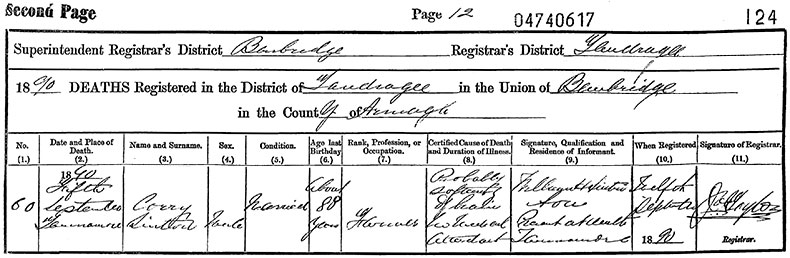 Second Page Page 12 04740617 124
Superintendent Registrar's District Banbridge Registrar's District Tandragee
1890 DEATHS Registered in the District of Tandragee in the Union of Banbridge
in the County of Armagh
No. Date and Place of Death. Name and Surname. Sex. Condition. Age last Birthday Rank, Profession, or Occupation. Certified Cause of Death and Duration of Illness. Signature, Qualification and Residence of Informant. When Registered Signature of Registrar.
(1.) (2.) (3.) (4.) (5.) (6.) (7.) (8.) (9.) (10.) (11.)
60
1890
Fifth
September
Corry
Sinton
Male
Married
About
88
years
Farmer
Probably
softening
of brain
no medical
attendant
Sinton
Son
Present at death
Twelfth
September
1890
Registrar.